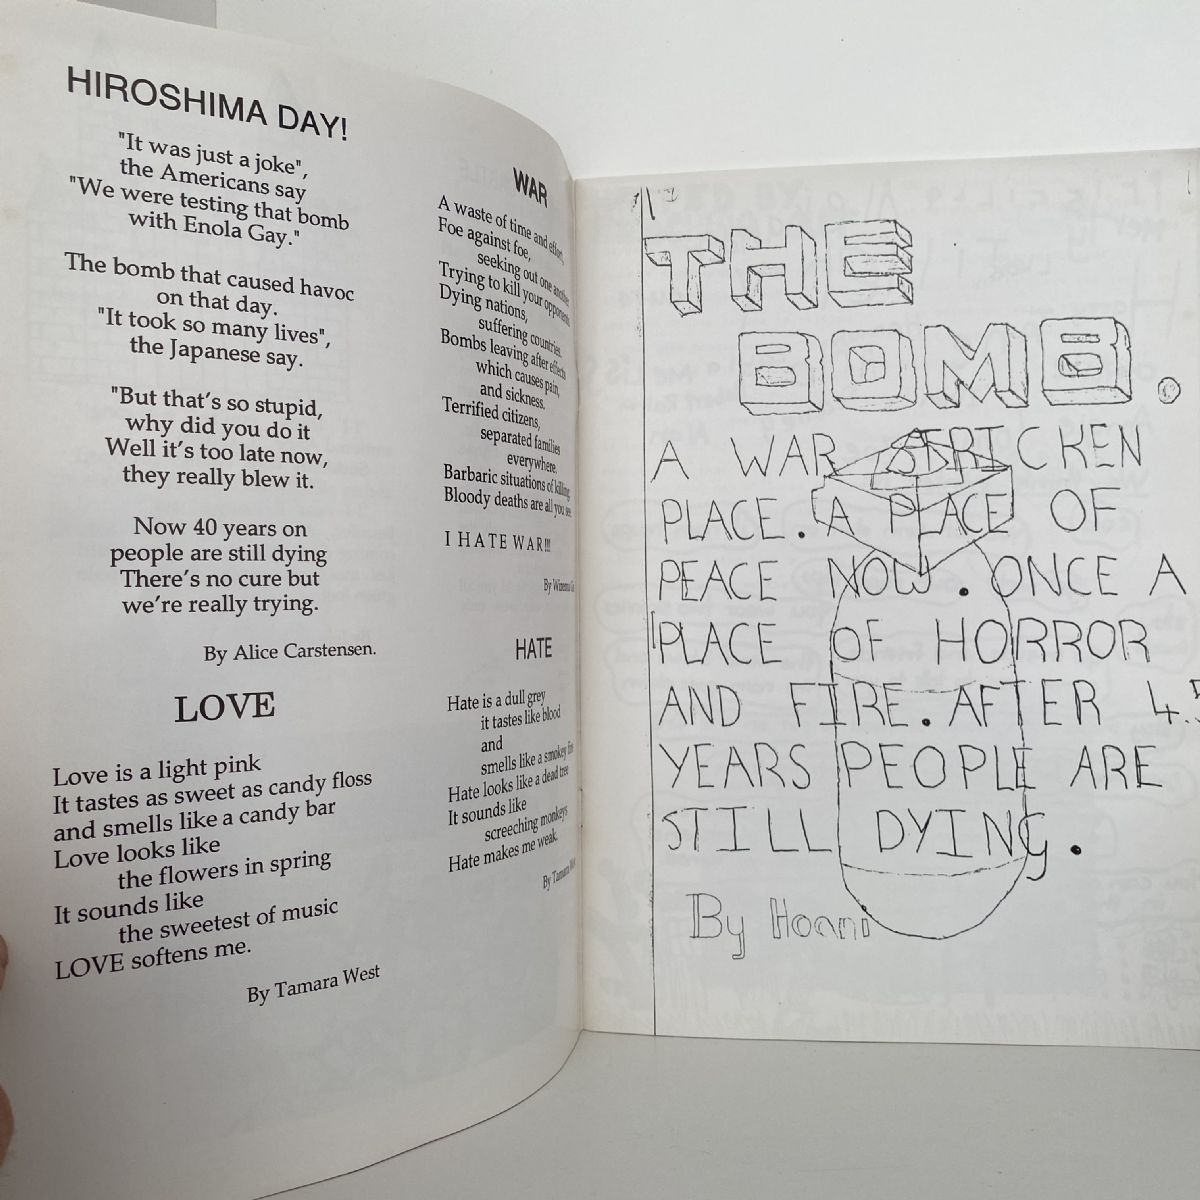 HIROSHIMA DAY!
"It was just a joke",
the Americans say
"We were testing that bomb
with Enola Gay."
The bomb that caused havoc
on that day.
"It took so many lives",
the Japanese say.
"But that's so stupid,
why did you do it
Well it's too late now,
they really blew it.
Now 40 years on
people are still dying
There's no cure but
we're really trying.
By Alice Carstensen.
LOVE
Love is a light pink
It tastes as sweet as candy floss
and smells like a candy bar
Love looks like
the flowers in spring
It sounds like
the sweetest of music
LOVE softens me.
By Tamara West
WAR
A waste of time and effort,
Foe against foe,
seeking out one another
Trying to kill your opponents
Dying nations,
suffering countries.
Bombs leaving after effects
which causes pain,
and sickness.
Terrified citizens,
separated families
everywhere.
Barbaric situations of killing
Bloody deaths are all you see.
I HATE WAR!!!
By
HATE
Hate is a dull grey
it tastes like blood
and
smells like a smokey
Hate looks like a dead tree
It sounds like
screeching monkeys
Hate makes me weak.
By Tamara
THE
BOMB.
A WAR STRICKEN
PLACE. A PLACE OF
PEACE NOW. ONCE A
PLACE OF HORROR
AND FIRE. AFTER 45
YEARS PEOPLE ARE
STILL DYING.
By Hoani